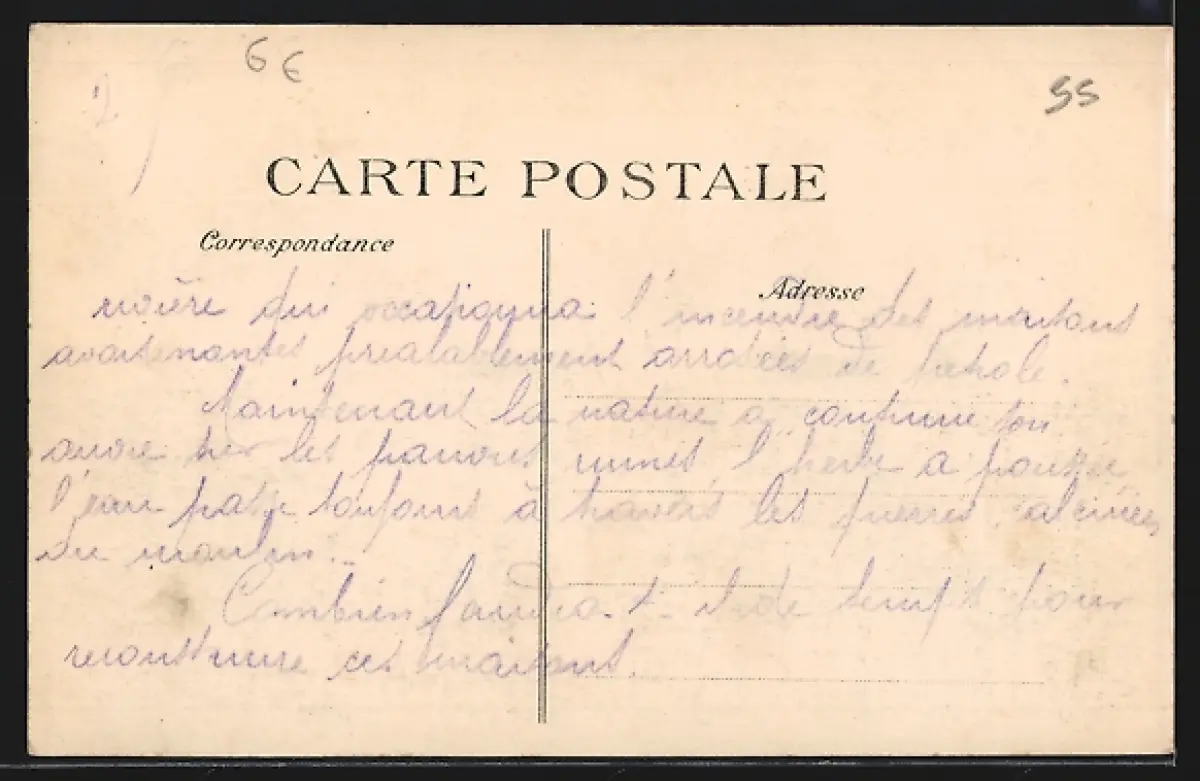 6 €
55
2
CARTE POSTALE
Correspondance
Adresse
qui occasionna l'incendie des maisons
avoisinantes préalablement arrosées de pétrole.
Maintenant la nature a continué son
œuvre sur les pauvres ruines, l'herbe a poussée
l'eau passe toujours à travers les pierres calcinées
du moulin...
Combien faudra-t-il de temps pour
reconstruire ces maisons.